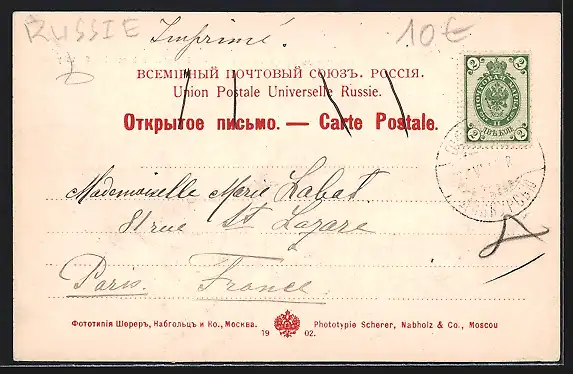 RUSSIE
Imprimé.
10€
ВСЕМІРНЫЙ ПОЧТОВЫЙ СОЮЗЪ. РОССІЯ.
Union Postale Universelle Russie.
Открытое письмо. — Carte Postale.
2 2
2 ДВѢ КОП. 2
Mademoiselle Marie Labat
81 rue St Lazare
Paris. France.
Фототипія Шереръ, Набгольцъ и Ко., Москва. 19 02. Phototypie Scherer, Nabholz & Co., Moscou